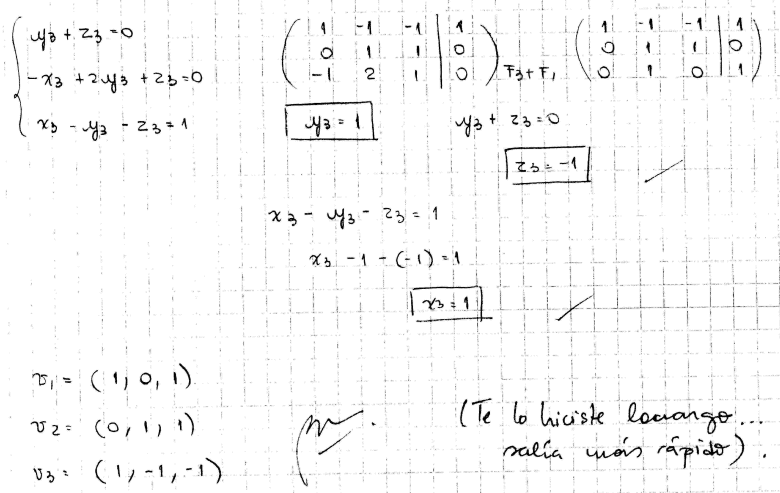 y3 + z3 = 0
-x3 + 2y3 + z3 = 0
x3 - y3 - z3 = 1
1 -1 -1 | 1
0 1 1 | 0
-1 2 1 | 0
F3 + F1
1 -1 -1 | 1
0 1 1 | 0
0 1 0 | 1
y3 = 1
y3 + z3 = 0
z3 = -1
x3 - y3 - z3 = 1
x3 - 1 - (-1) = 1
x3 = 1
v1 = (1, 0, 1)
v2 = (0, 1, 1)
v3 = (1, -1, -1)
(Te lo hiciste ...
salía más rápido).